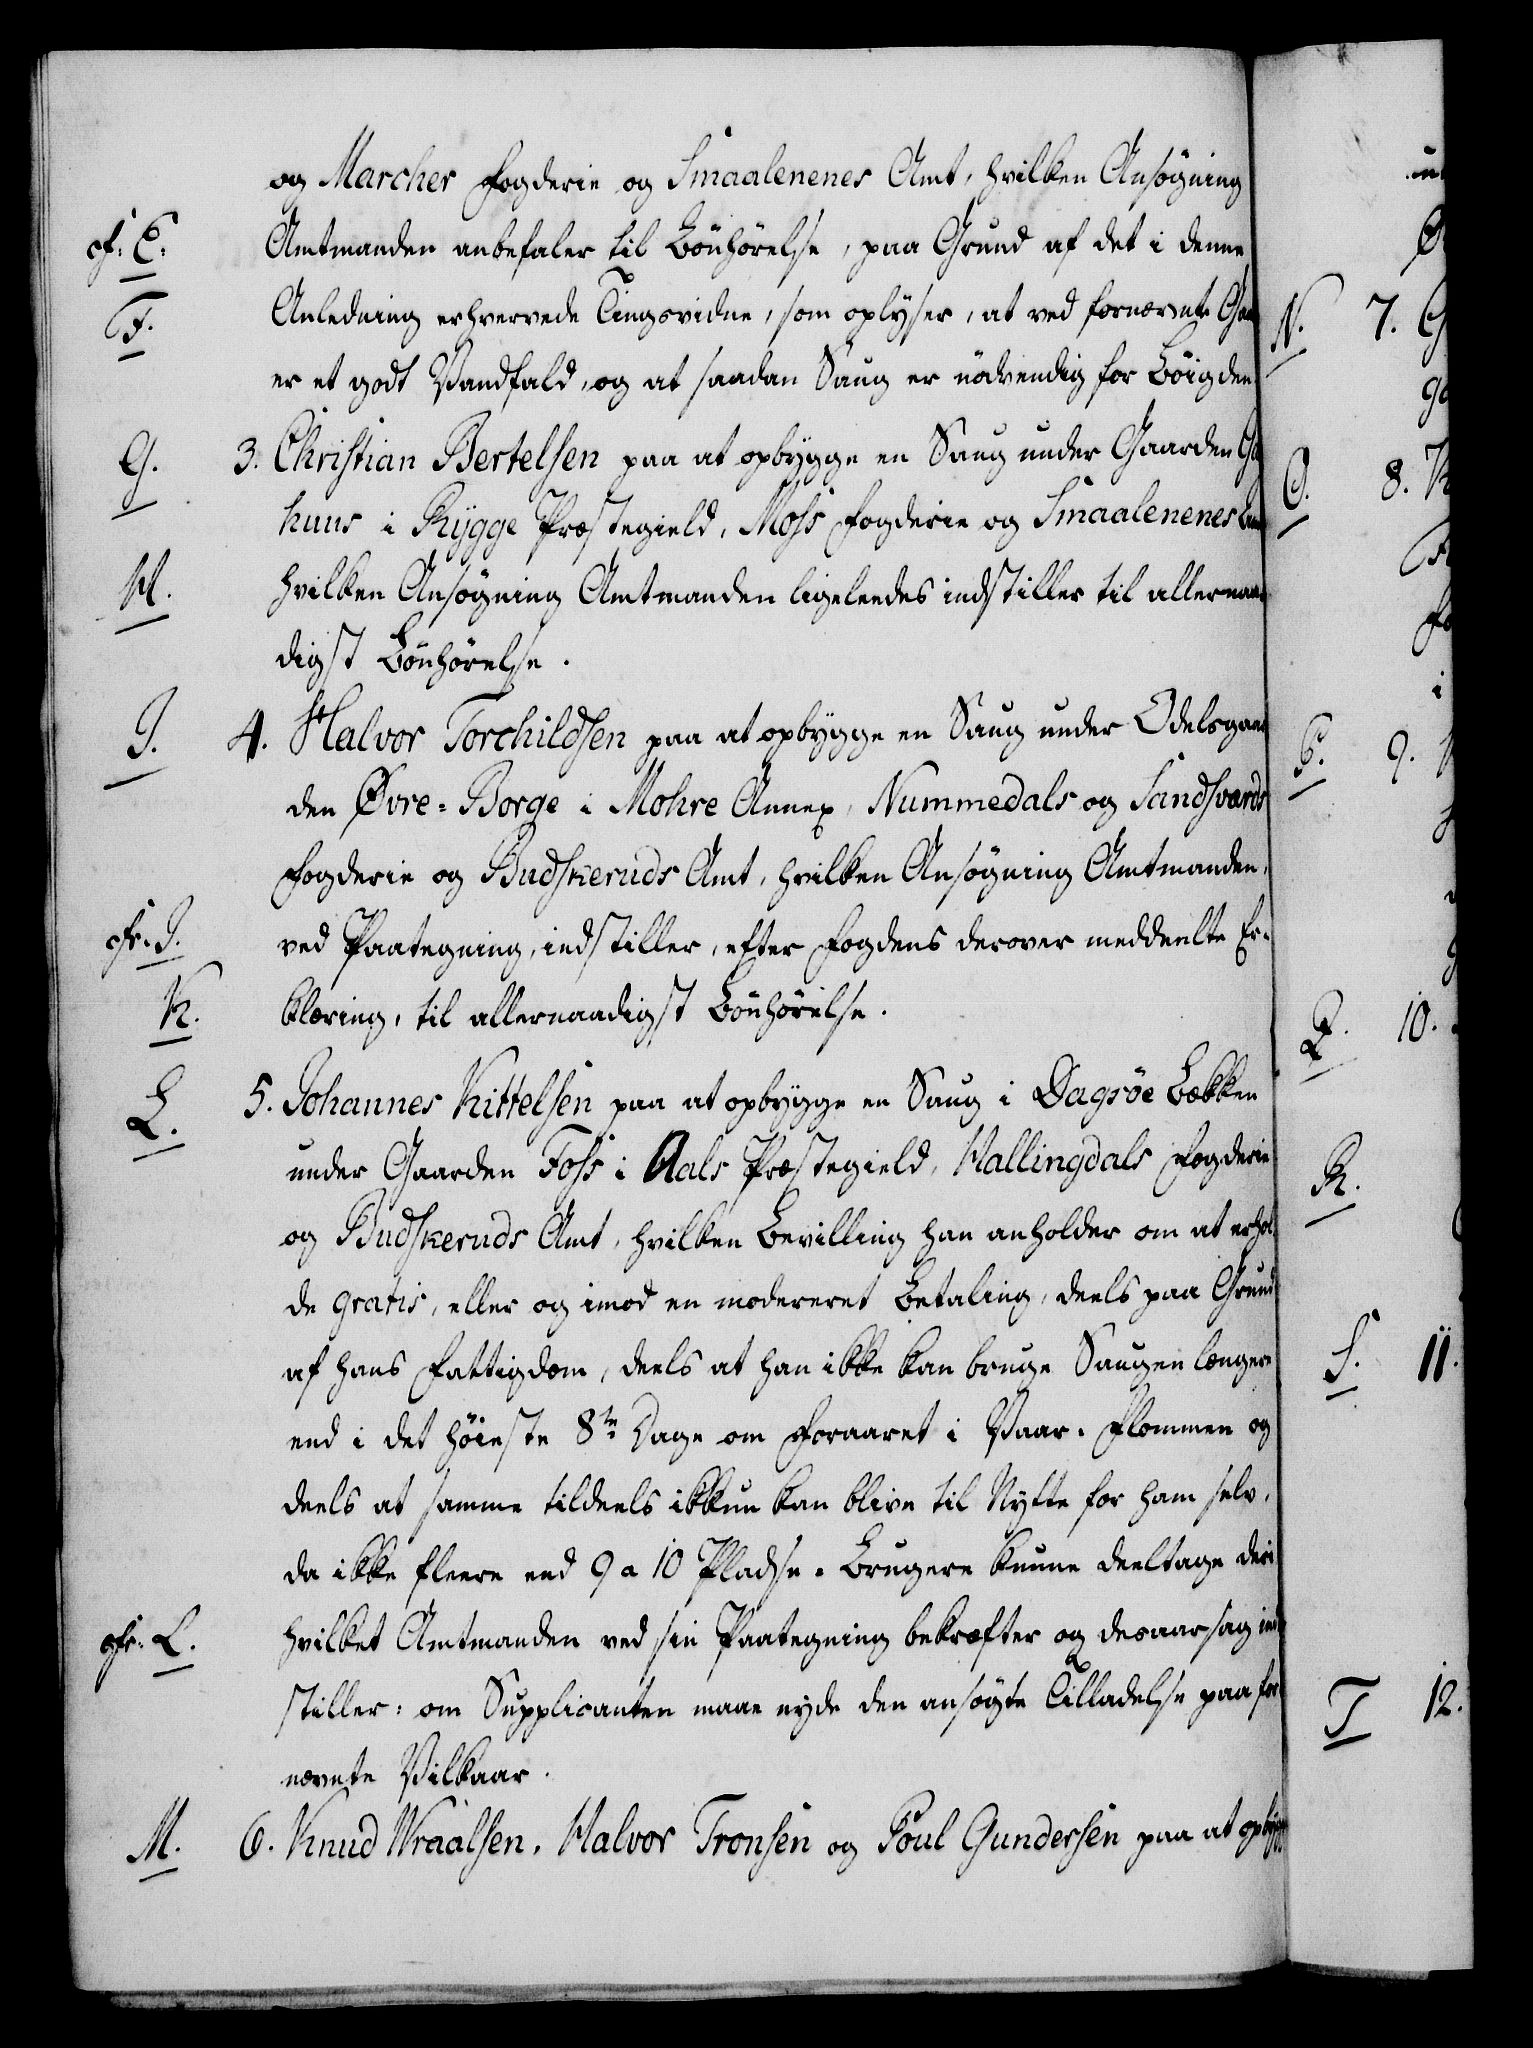 og Marcher Fogderie og Smaalenenes Amt, hvilken Ansøgning
cf. E.
Amtmanden anbefaler til Bönhörelse, paa Grund af det i denne
F.
Anledning erhvervede Tingsvidne, som oplyser, at ved fornævnte
er et godt Vandfald, og at saadan Saug er nödvendig for Böigden.
G.
3. Christian Bertelsen paa at opbygge en Saug under Gaarden
huus i Rygge Præstegield, Moss Fogderie og Smaalenenes
H.
hvilken Ansøgning Amtmanden ligeleedes indstiller til allernaa-
digst Bönhörelse.
I.
4. Halvor Torchildsen paa at opbygge en Saug under Odelsgaar
den Øvre-Borge i Mohre Annex, Nummedals og Sandsværds
Fogderie og Budskeruds Amt, hvilken Ansøgning Amtmanden,
cfr. I.
ved Paategning, indstiller, efter Fogdens derover meddeelte Er-
K.
klæring, til allernaadigst Bönhörelse.
L.
5. Johannes Kittelsen paa at opbygge en Saug i Dagsöe Bækken
under Gaarden Foss i Aals Præstegield, Hallingdals Fogderie
og Budskeruds Amt, hvilken Bevilling han anholder om at erhol
de gratis, eller og imod en modereret Betaling, deels paa Grund
af hans Fattigdom, deels at han ikke kan bruge Saugen længere
end i det höieste 8te Dage om Foraaret i Vaar-Flommen og
deels at samme tildeels ikkun kan blive til Nytte for ham selv,
da ikke fleere end 9 a 10 Pladse-Brugere kunne deeltage deri
cfr. L.
hvilket Amtmanden ved sin Paategning bekræfter og desaarsag ind
stiller: om Supplicanten maae nyde den ansøgte Tilladelse paa for
nævnte Vilkaar.
M.
6. Knud Wraalsen, Halvor Tronsen og Poul Gundersen paa at opbygge
N.
7.
O.
8.
P.
9.
Q.
10.
R.
S.
11.
T
12.